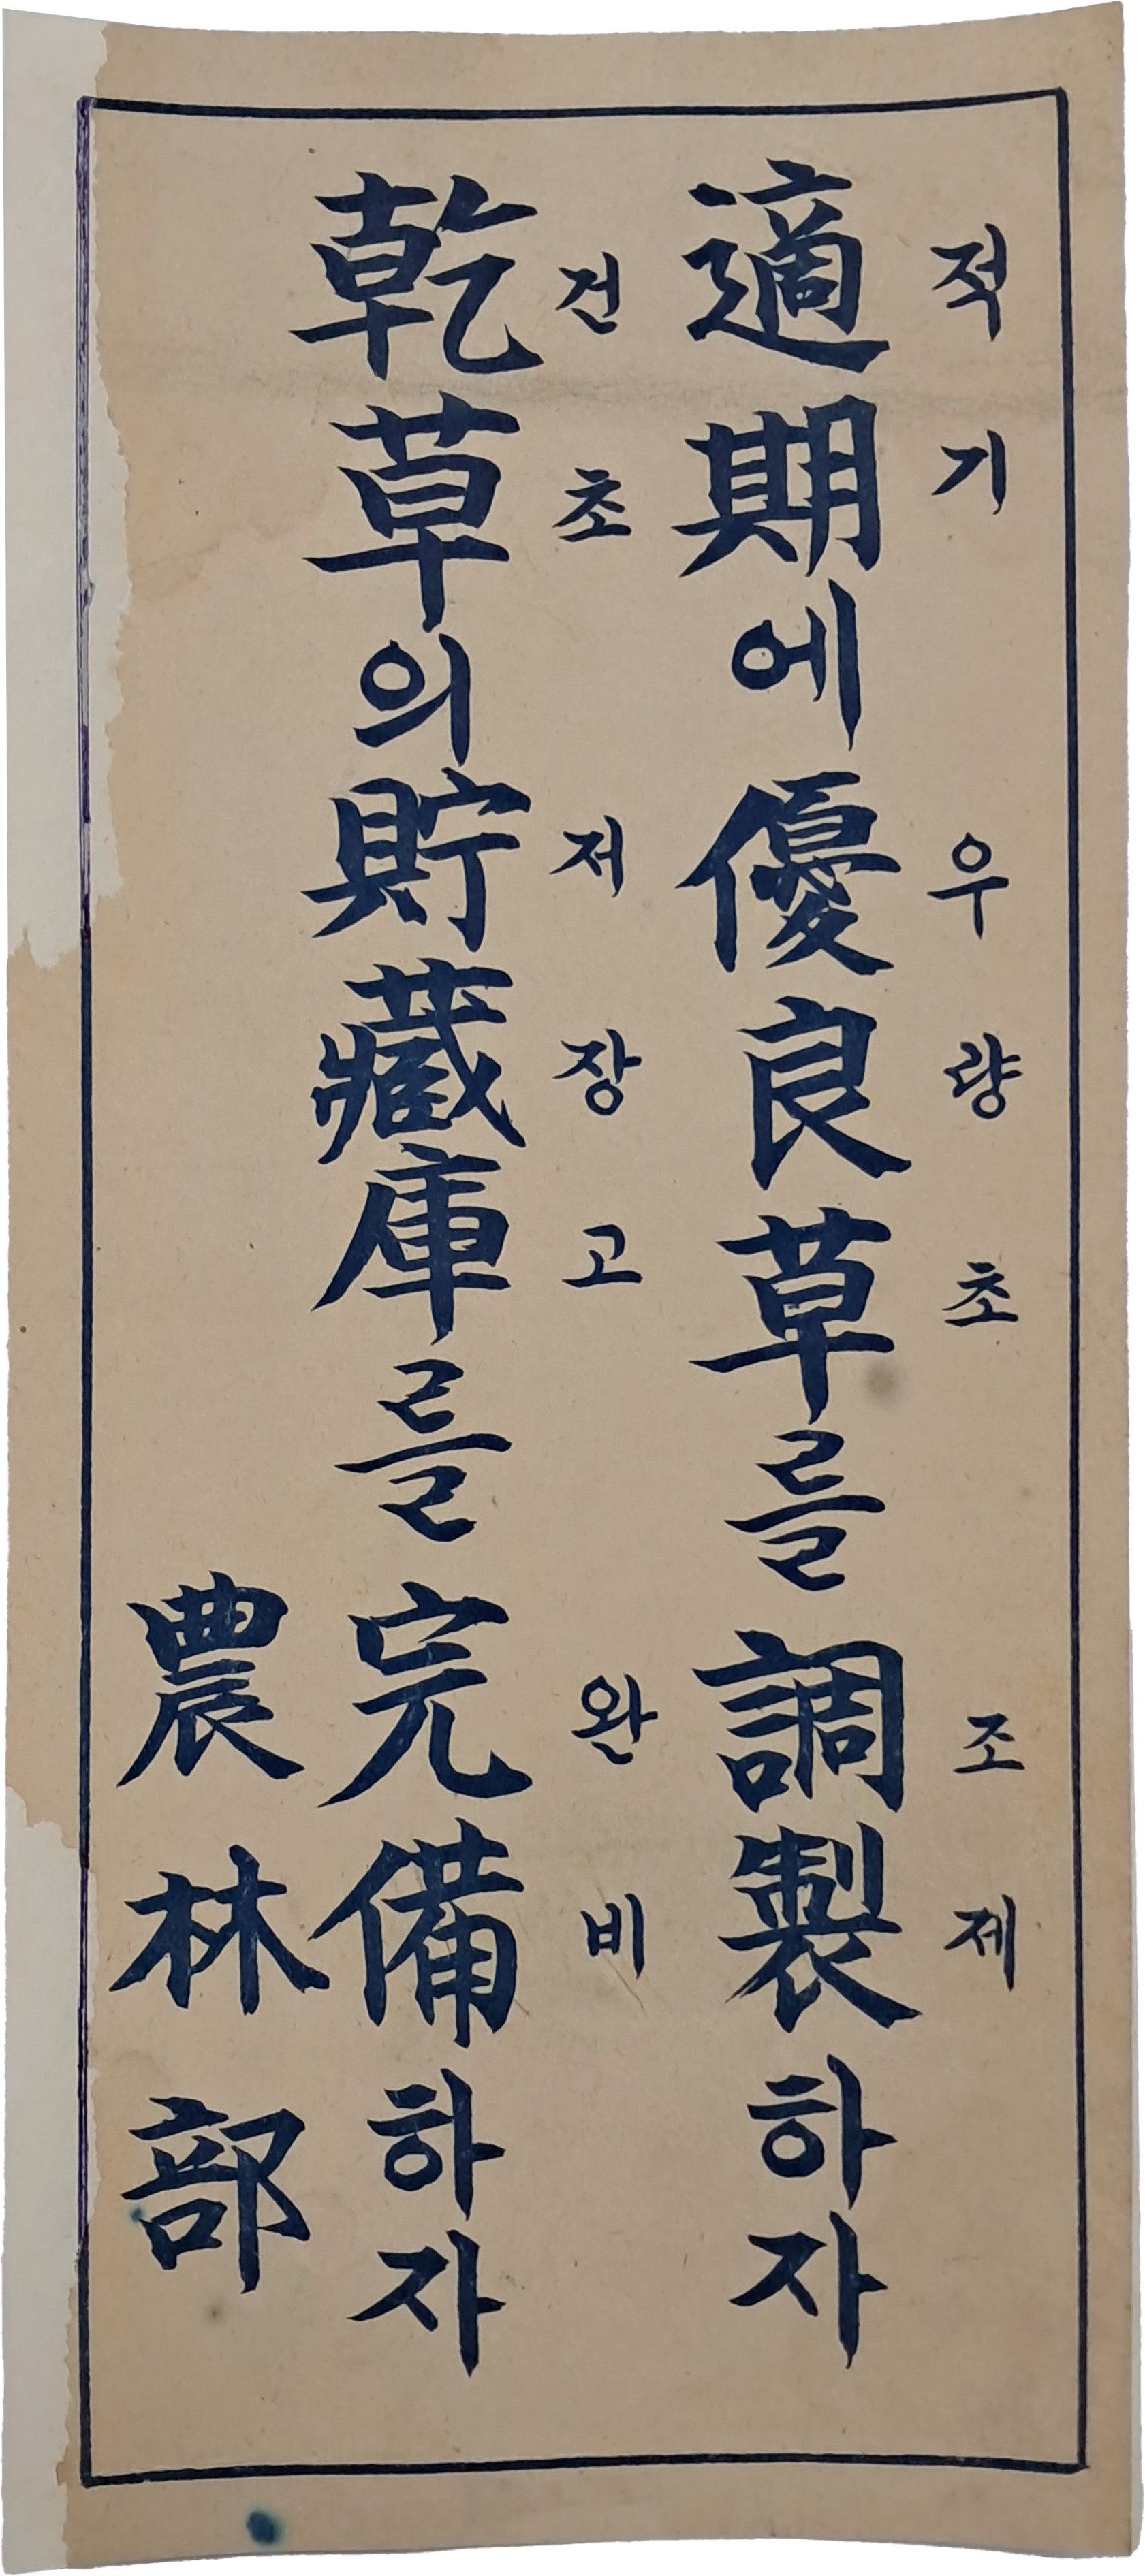 적기 우량초 조제
適期에優良草를調製하자
건초 저장고 완비
乾草의貯藏庫를完備하자
農林部